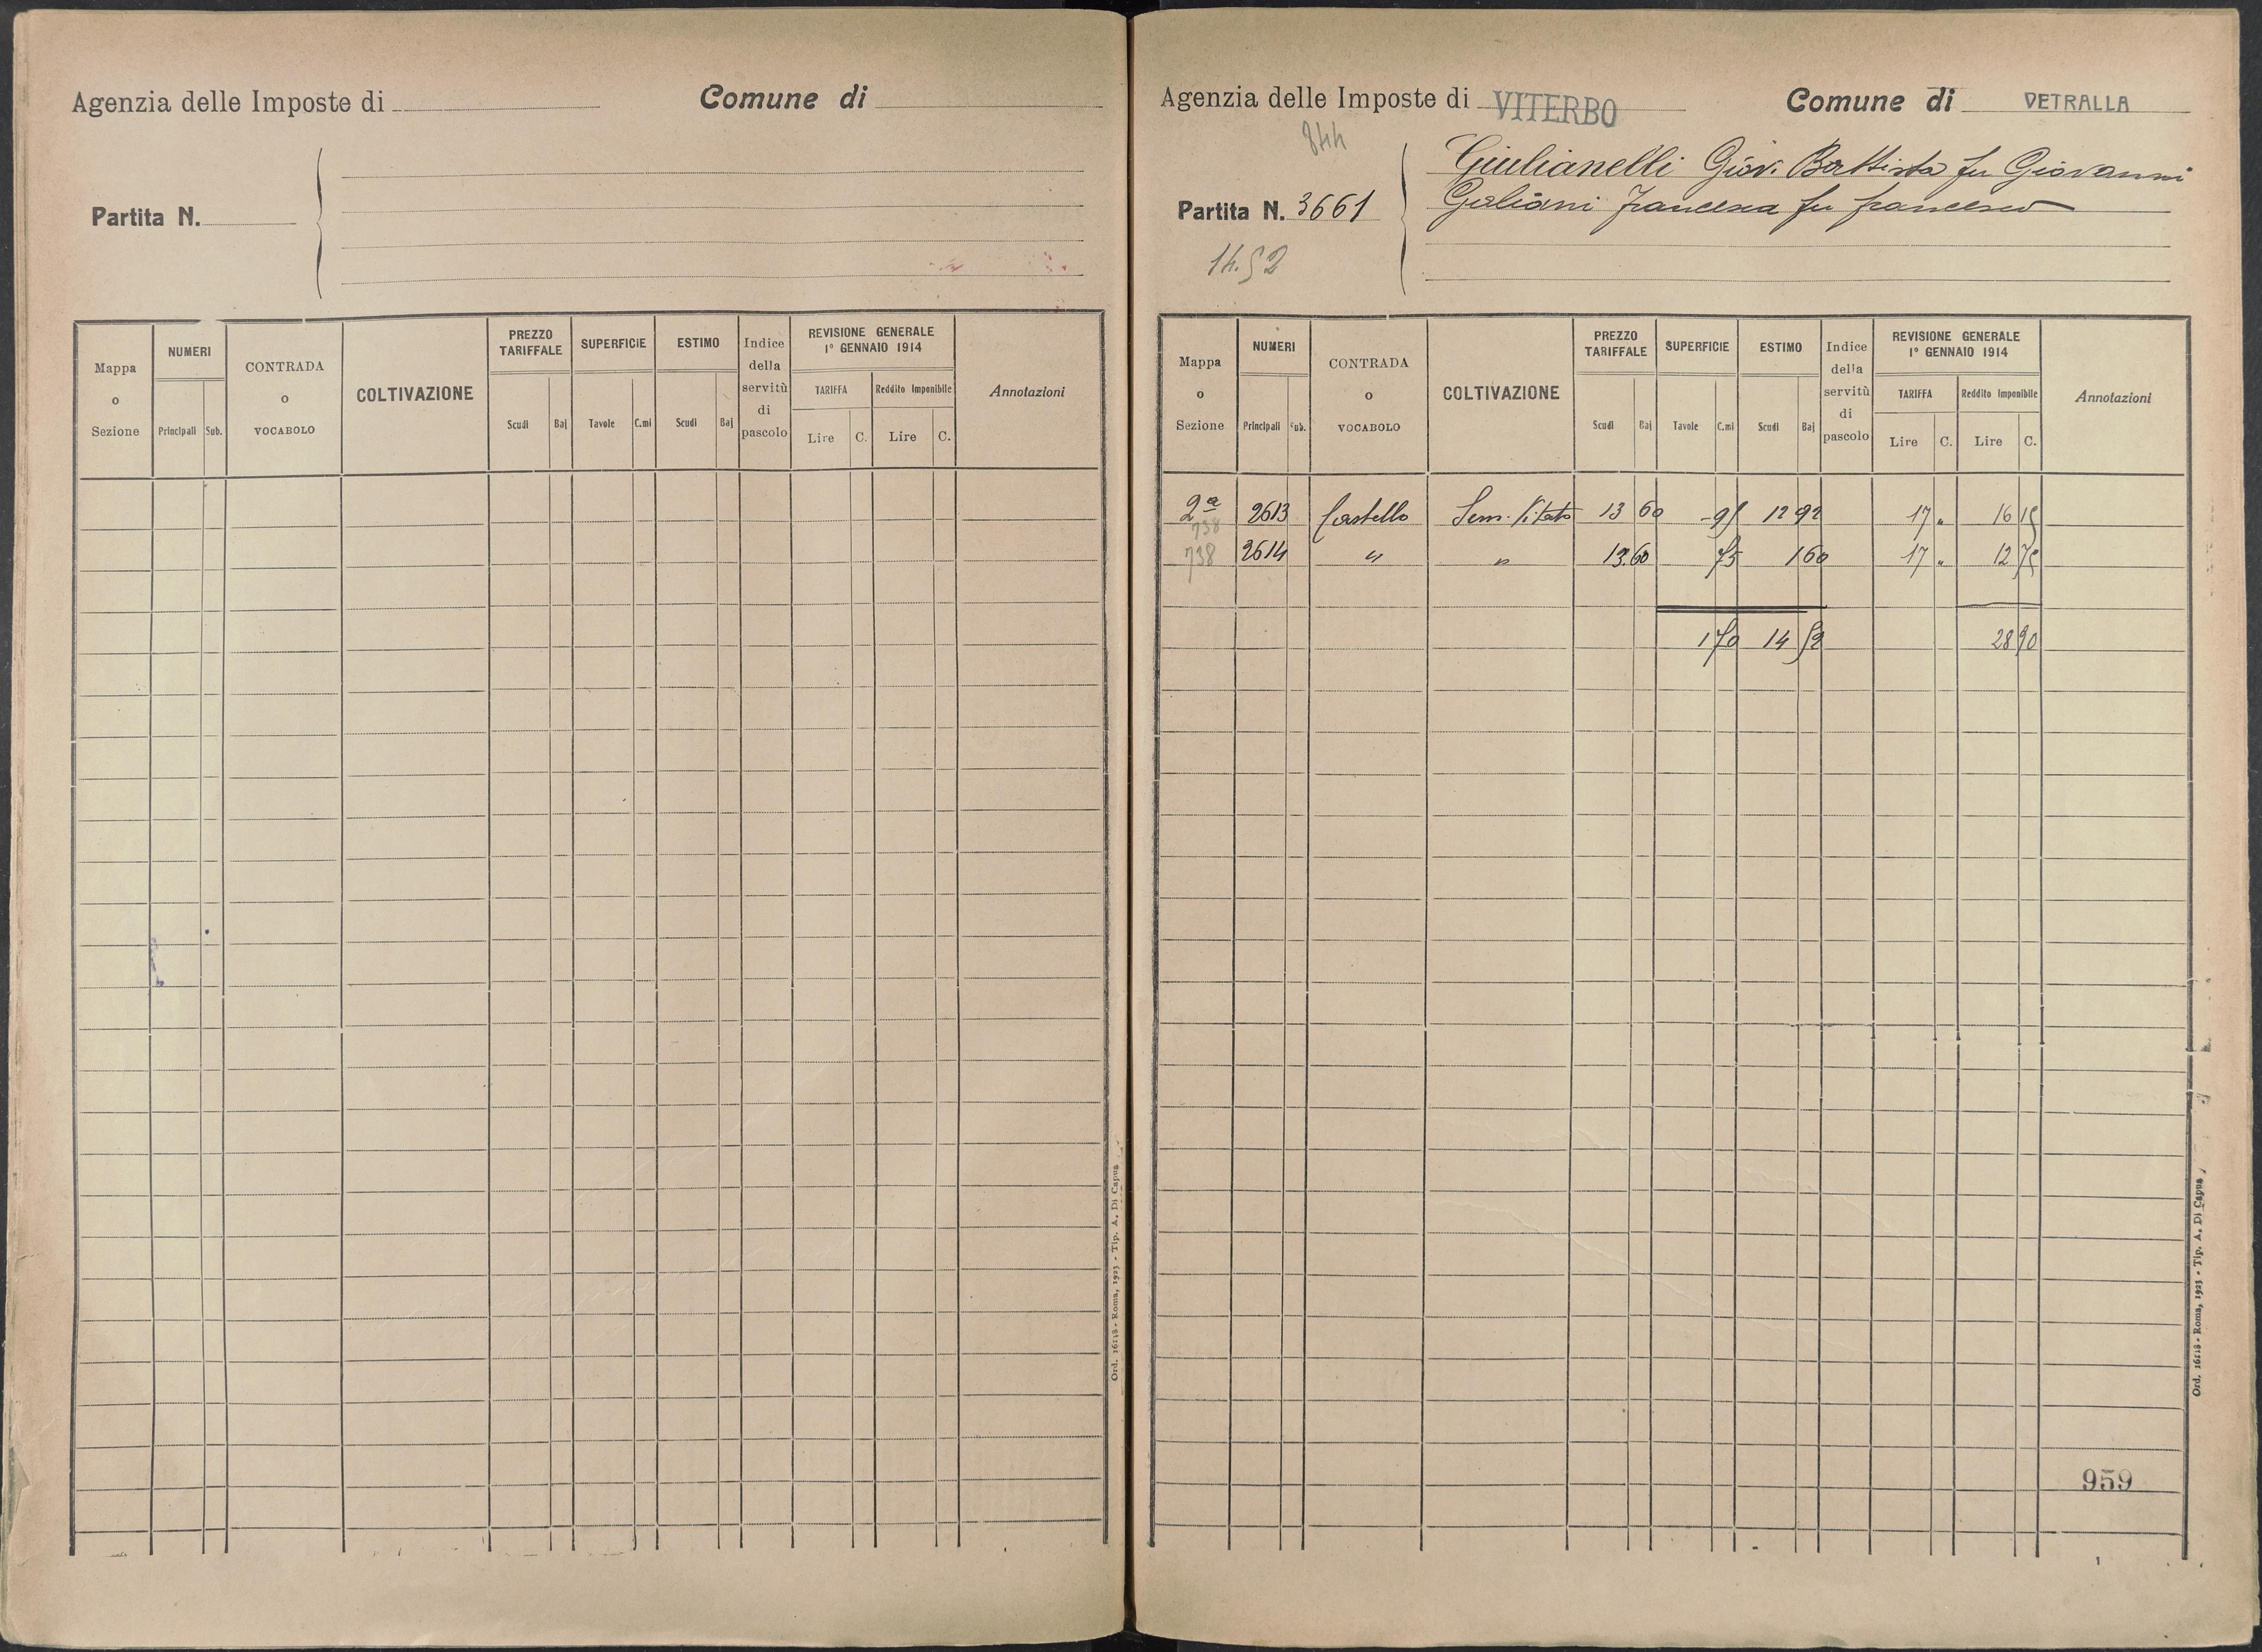 Agenzia delle Imposte di
Comune di
Partita N.
Mappa o Sezione
NUMERI
Principali Sub.
CONTRADA o VOCABOLO
COLTIVAZIONE
PREZZO TARIFFALE
Scudi Baj
SUPERFICIE
Tavole C.mi
ESTIMO
Scudi Baj
Indice della servitù di pascolo
REVISIONE GENERALE
1° GENNAIO 1914
TARIFFA
Lire C.
Reddito Imponibile
Lire C.
Annotazioni
Ord. 16118 - Roma, 1923 - Tip. A. Di Capua
Agenzia delle Imposte di VITERBO
Comune di VETRALLA
844
Giulianelli Giov. Battista fu Giovanni
Partita N. 3661
Galiani Francesca fu Francesco
14.52
Mappa o Sezione
NUMERI
Principali Sub.
CONTRADA o VOCABOLO
COLTIVAZIONE
PREZZO TARIFFALE
Scudi Baj
SUPERFICIE
Tavole C.mi
ESTIMO
Scudi Baj
Indice della servitù di pascolo
REVISIONE GENERALE
1° GENNAIO 1914
TARIFFA
Lire C.
Reddito Imponibile
Lire C.
Annotazioni
2ª 2613 Castello Sem. Vitato 13 60 - 95 12 92 17 " 16 15
738
738 2614 " " 13.60 75 1 60 17 " 12 75
1 70 14 52 28 90
959
Ord. 16118 - Roma, 1923 - Tip. A. Di Capua